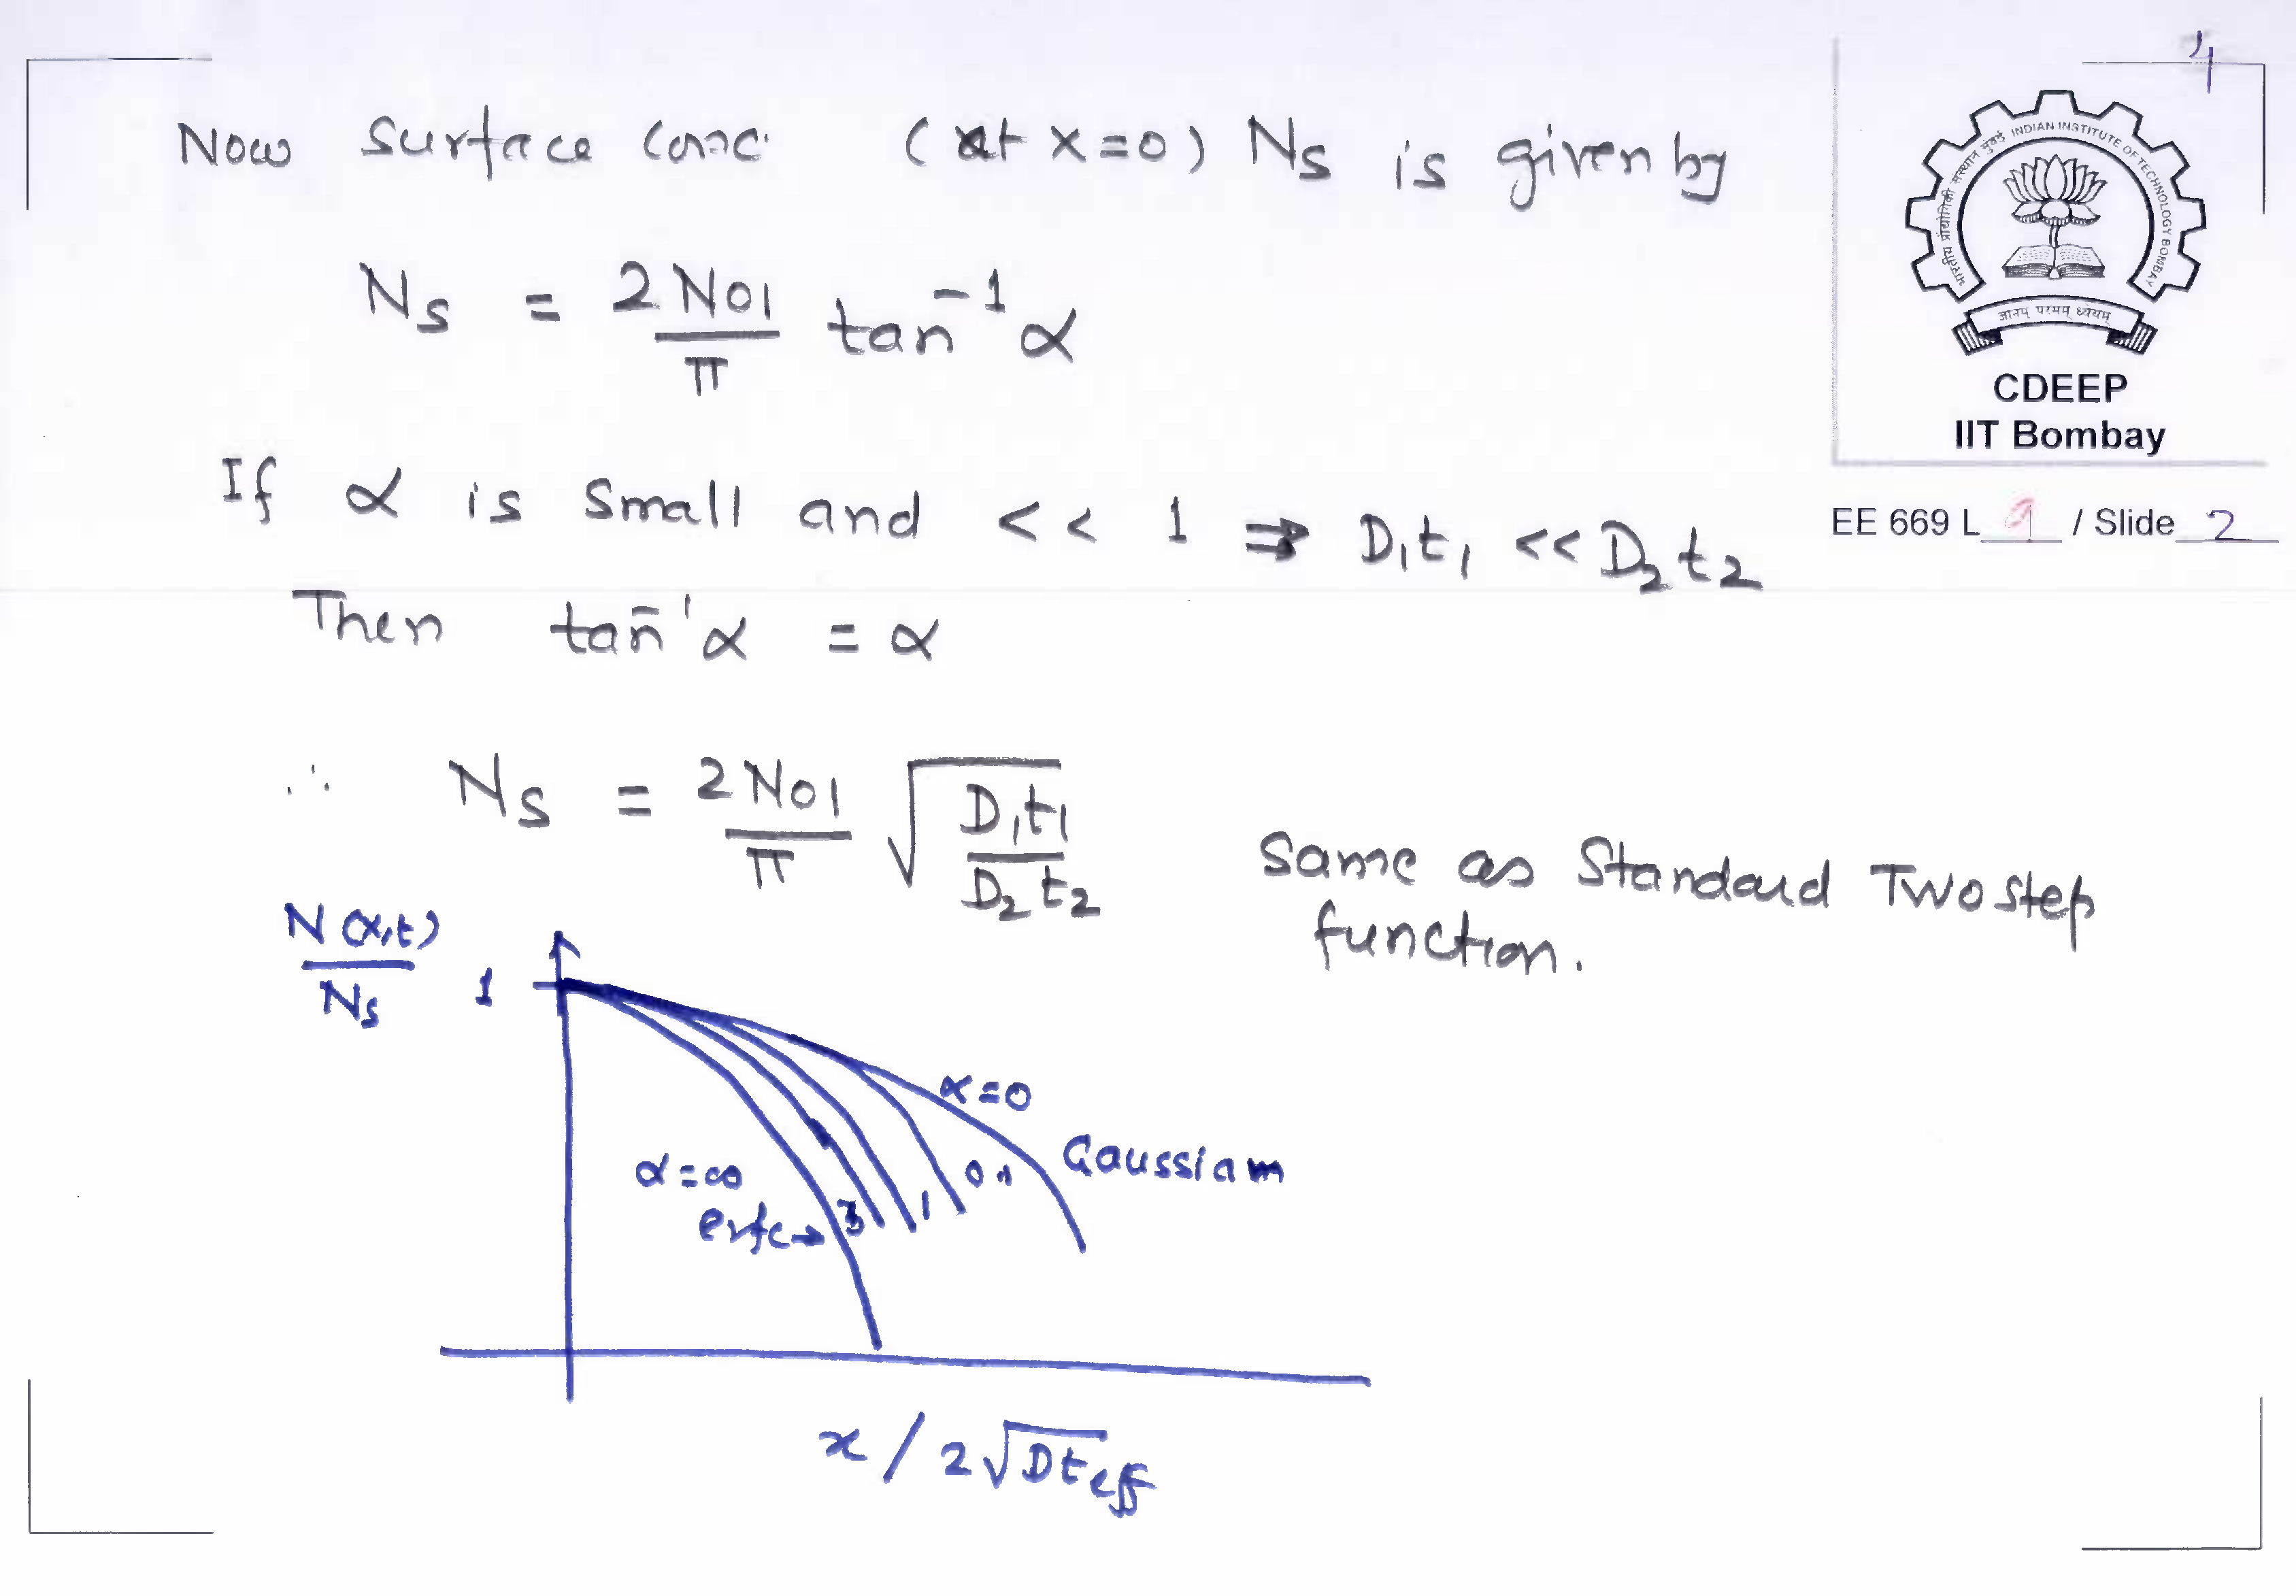 4
Now surface conc. (at x=0) Ns is given by
Ns = 2 N01 / π tan⁻¹ α
If α is small and << 1 ⇒ D1t1 << D2t2
Then tan⁻¹ α = α
∴ Ns = 2 N01 / π √(D1t1 / D2t2)
Same as Standard Two step
function.
N(x,t) / Ns
1
α=0
Gaussian
α=∞
erfc→
3
1
x / 2√Dteff
INDIAN INSTITUTE OF TECHNOLOGY BOMBAY
भारतीय प्रौद्योगिकी संस्थान मुंबई
ज्ञानम् परमम् ध्येयम्
CDEEP
IIT Bombay
EE 669 L / Slide 2